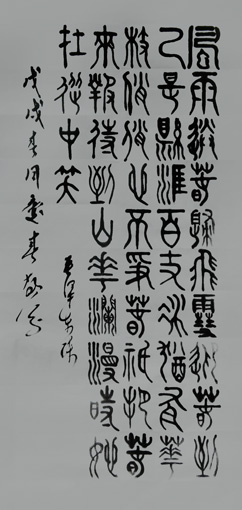 風雨送春歸飛雪迎春到
已是懸崖百丈冰猶有華
枝俏俏也不爭春祇把春
來報待到山華瀾漫時她
在從中笑
戊戌春月